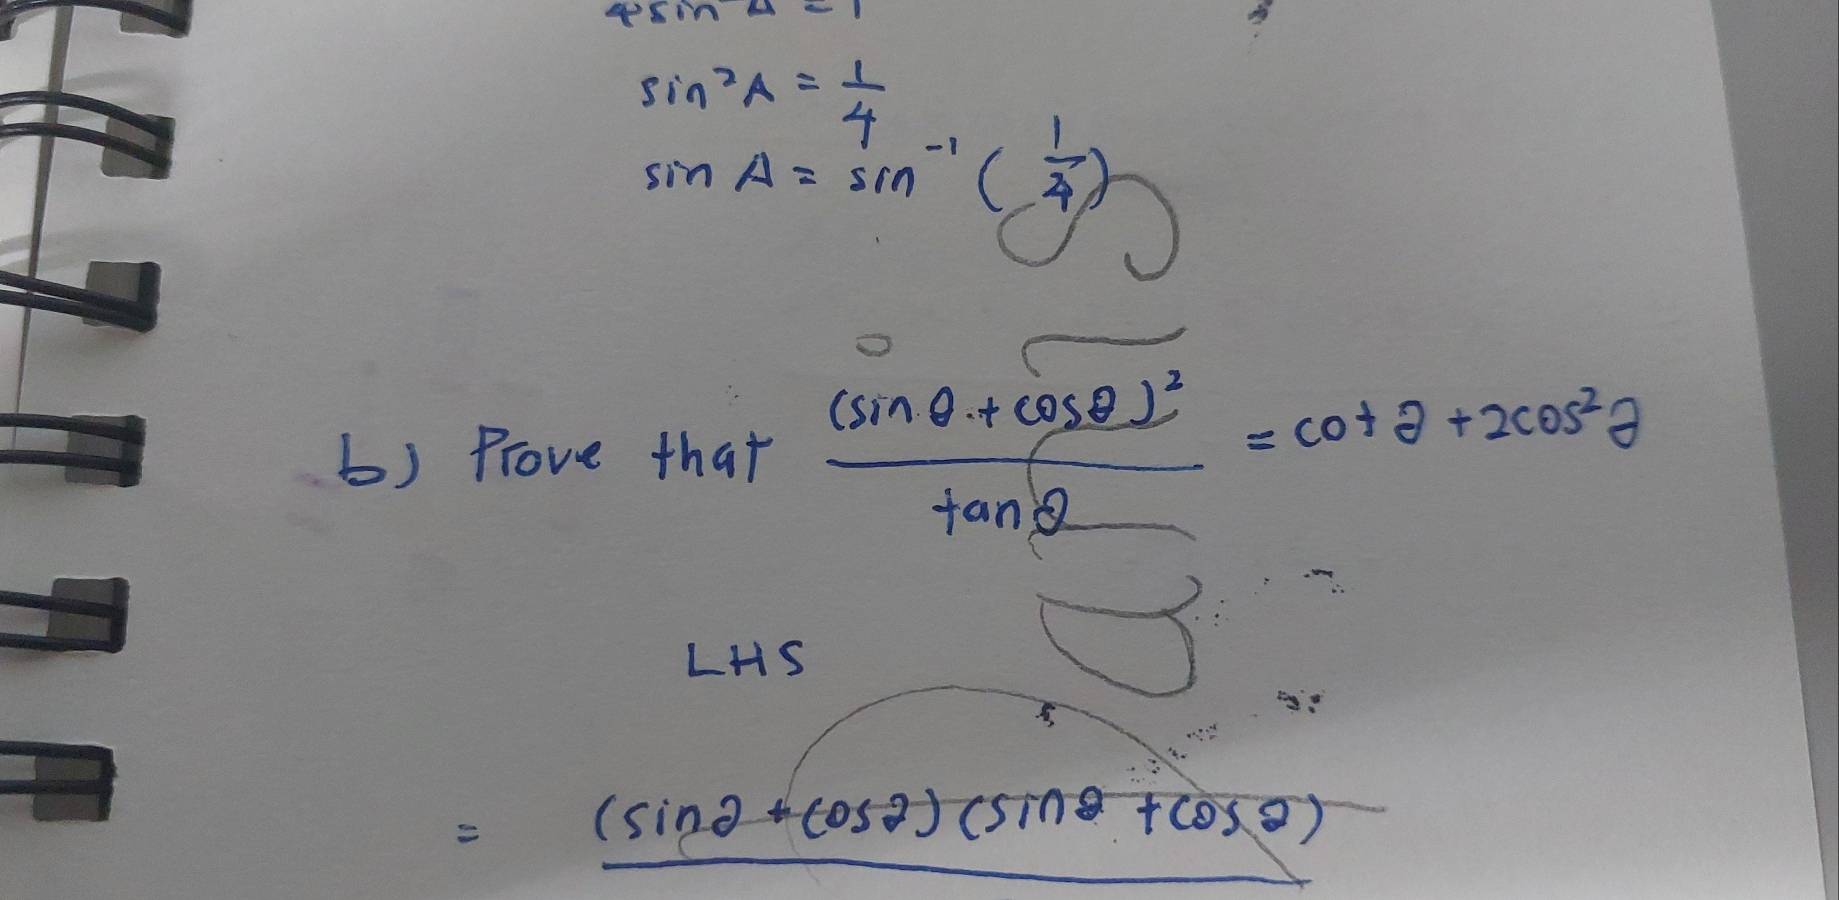 4sin²A = 1
sin²A = 1/4
sin A = sin⁻¹ (1/4)
b) Prove that (sin θ + cos θ)² / tan θ = cot θ + 2cos² θ
LHS
= (sin θ + cos θ)(sin θ + cos θ)